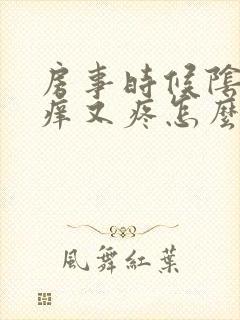 房事時候陰
痒又疼怎麼
風舞紅葉